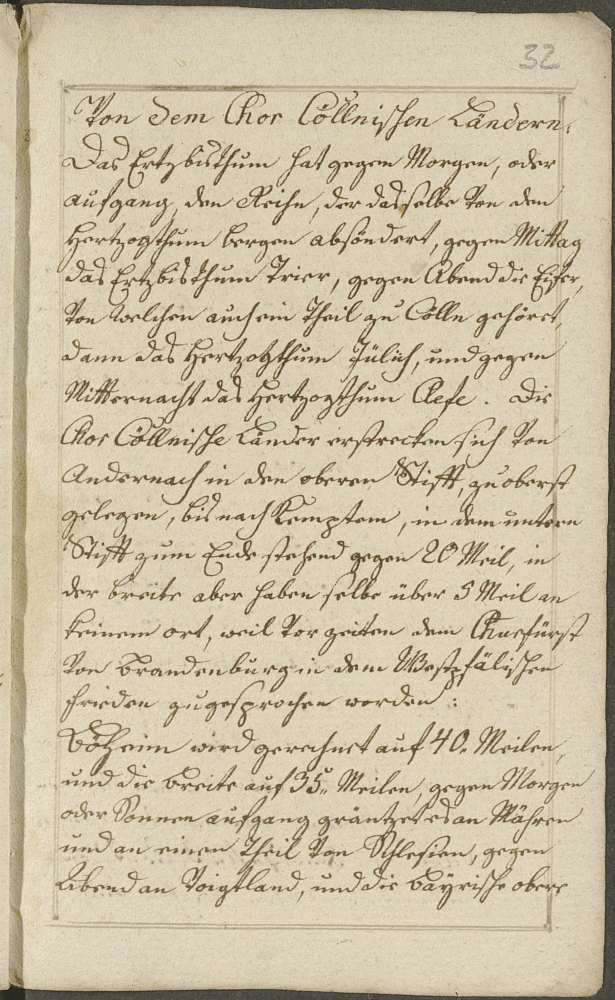 32
Von dem Chor Cöllnischen Ländern.
Das Ertzbisthum hat gegen Morgen, oder
aufgang, den Rhein, der dasselbe von dem
Hertzogthum bergen absöndert, gegen Mittag
das Ertzbisthum Trier, gegen Abend die Eifer,
von welchen auch ein Theil zu Cölln gehöret,
dann das Hertzogthum Jülich, und gegen
Mitternacht das Hertzogthum Clefe. Die
Chor Cöllnische Länder erstrecken sich von
Andernach in den oberen Stifft, zu oberst
gelegen, bis nach Kempten, in dem untern
Stifft zum Ende stehend gegen 20 Meil, in
der breite aber haben selbe über 5 Meil an
keinem ort, weil vor zeiten dem Churfürst
von brandenburg in dem Westpfälischen
frieden zugesprochen worden:
böheim wird gerechnet auf 40. Meilen,
und die breite auf 35. Meilen, gegen Morgen
oder Sonnen aufgang gräntzet es an Mähren
und an einen Theil von Schlesien, gegen
Abend an Voigtland, und die bayrische obere